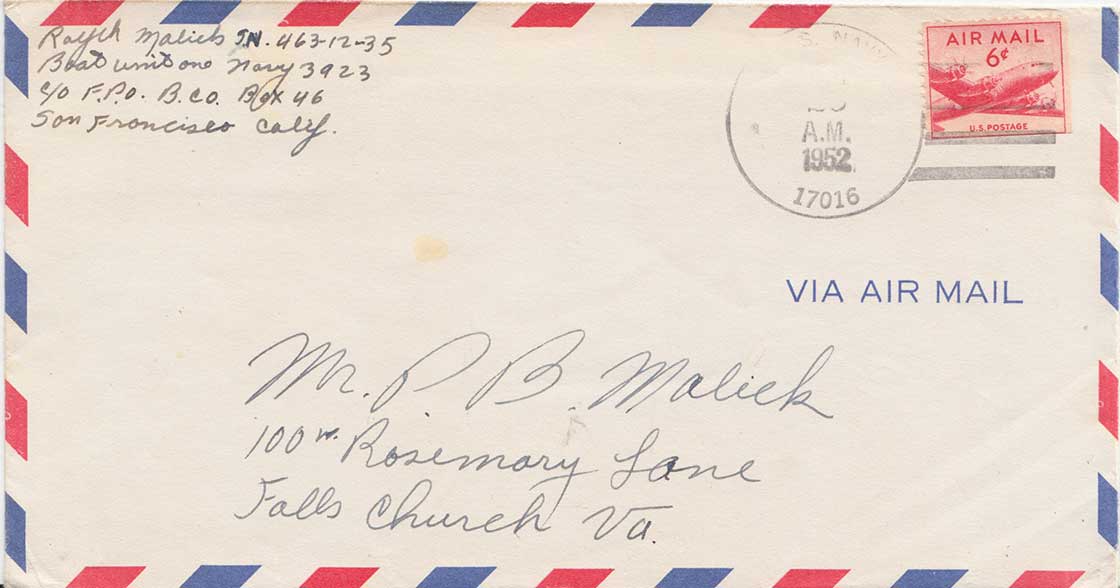 Raych Malick S.N. 463-12-35
Boat unit one Navy 3923
c/o F.P.O. B.Co. Box 46
San Francisco Calif.
U.S. NAVY
A.M.
1952
17016
AIR MAIL
6¢
U.S. POSTAGE
VIA AIR MAIL
Mr. P. B. Malick
100 W. Rosemary Lane
Falls Church Va.